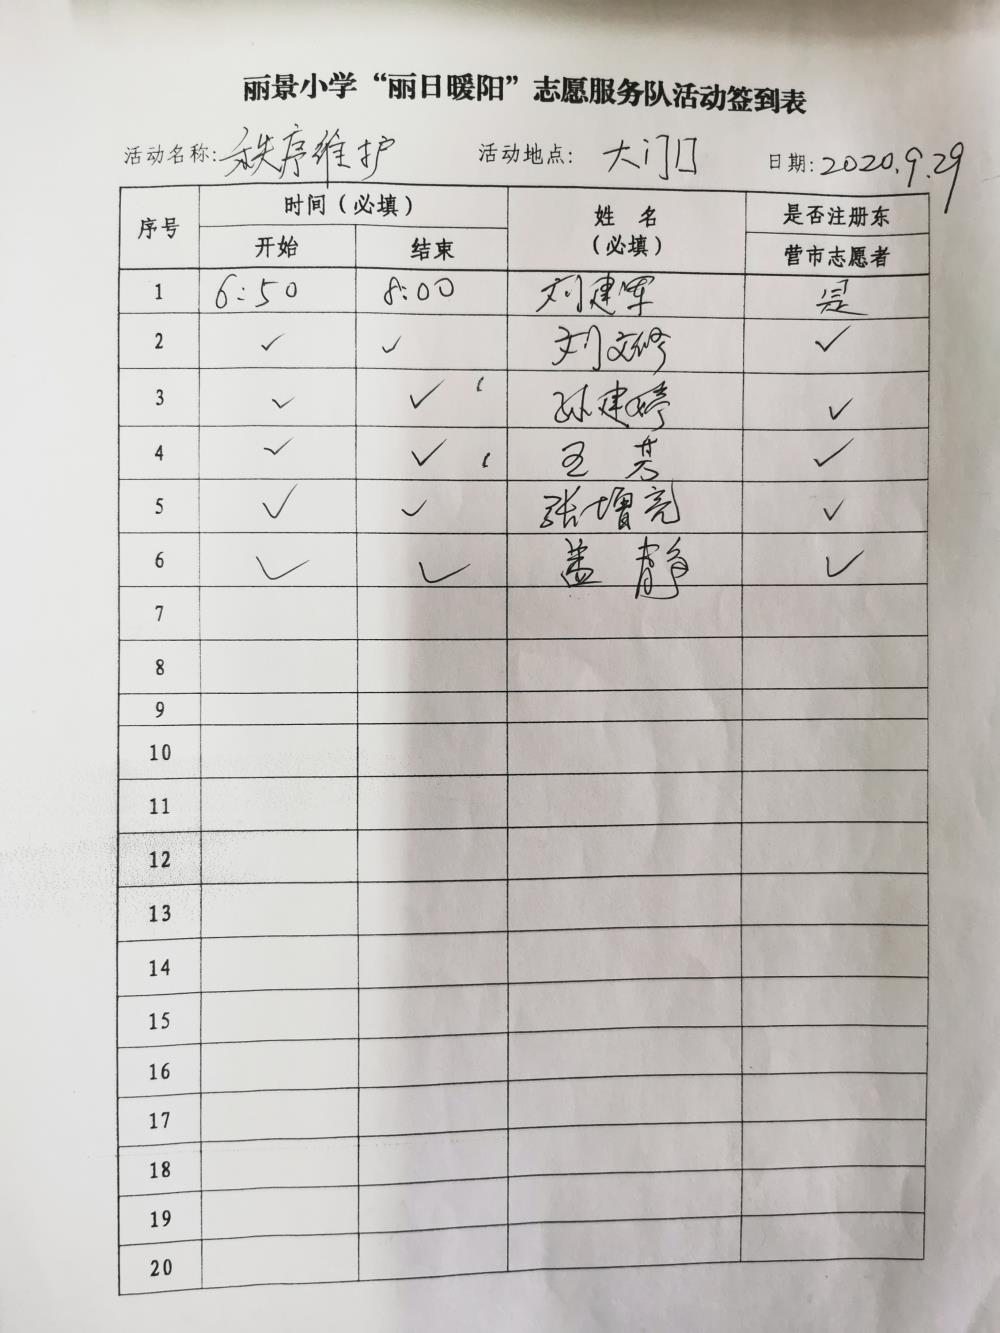 丽景小学“丽日暖阳”志愿服务队活动签到表
活动名称:秩序维护 活动地点: 大门口 日期:2020.9.29
序号 时间（必填） 姓 名（必填） 是否注册东营市志愿者
开始 结束
1 6:50 8:00 刘建军 是
2 ✓ ✓ 刘文修 ✓
3 ✓ ✓ 孙建婷 ✓
4 ✓ ✓ 王 芳 ✓
5 ✓ ✓ 张增亮 ✓
6 ✓ ✓ 盖 静 ✓
7
8
9
10
11
12
13
14
15
16
17
18
19
20